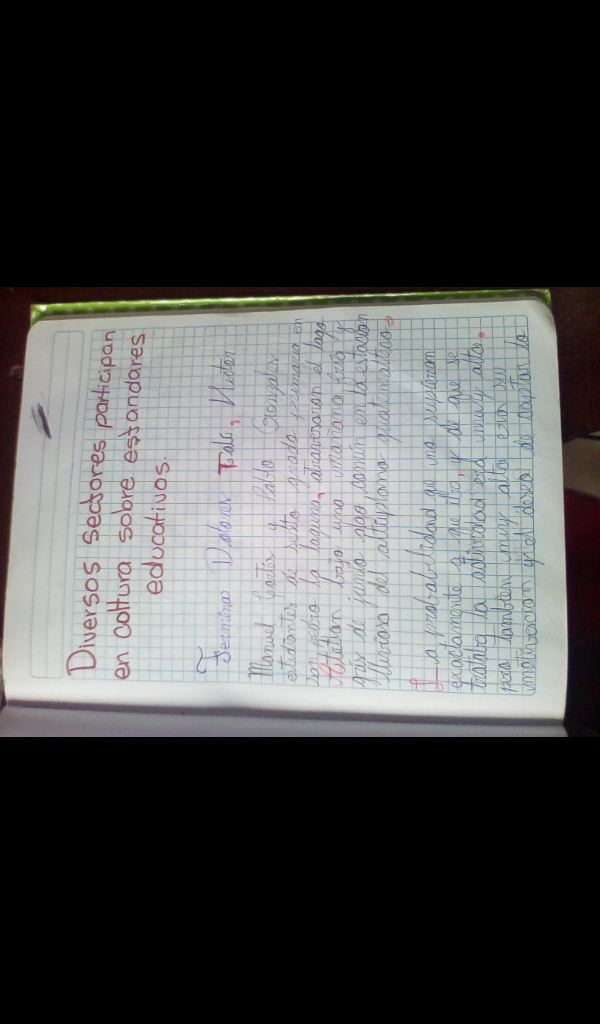 Diversos sectores participan
en coltura sobre estandares
educativos.
Dolores Fabi, Hector
Manuel Cortes y Pablo Gonzales
estudantes de sexto grado primaria en
san pedro la laguna, atravesaron el lago
Atitlan bajo una mañana fria y
gris de junio, algo común en la estacion
lluviosa del altiplano guatemalteco.
La probabilidad que no supieran
exactamente a que iba, y de que se
trataba la actividad era muy alta.
pero tambien muy alta era su
motivacion y el deseo de la